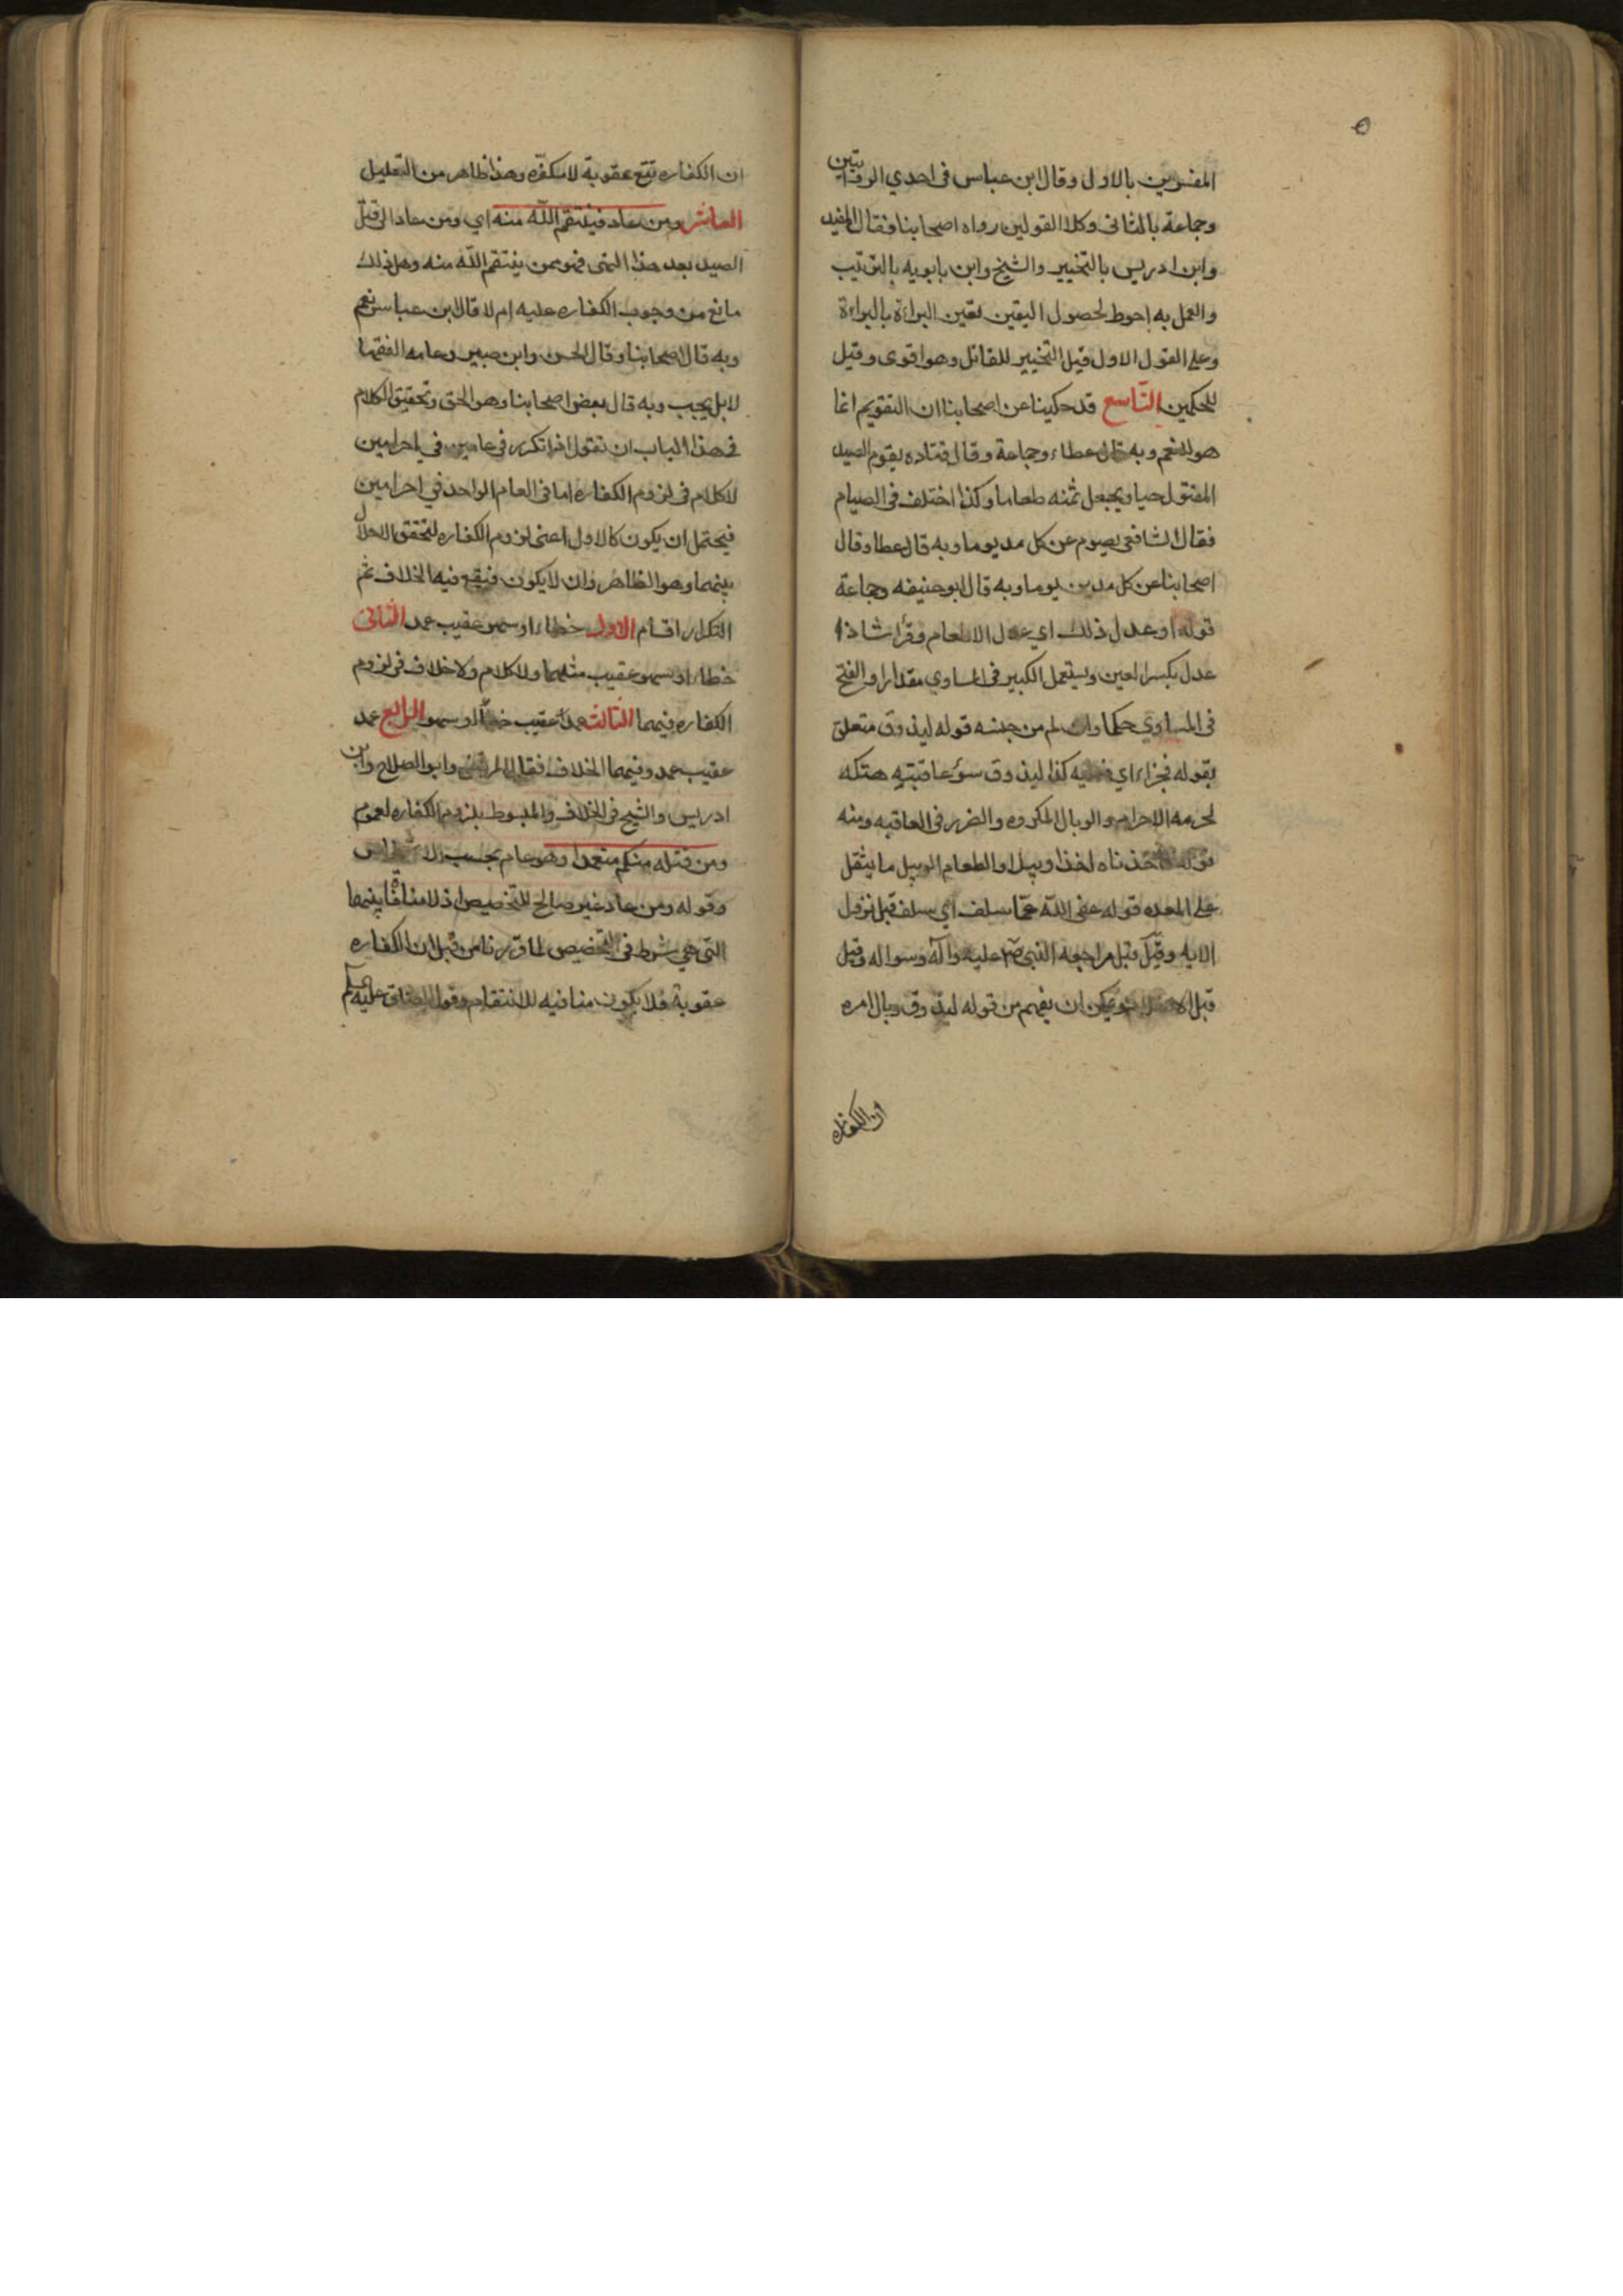 المفسرين بالاول وقال ابن عباس في احدي الروايتين
وجماعة بالثاني وكلا القولين رواه اصحابنا فقال المفيد
وابن ادريس بالتخيير والشيخ وابن بابويه بالترتيب
والعمل به احوط لحصول اليقين تعين البراءة بالبراءة
وعلي القول الاول قيل التخيير للقاتل وهو اقوي وقيل
للحكمين التاسع قد حكينا عن اصحابنا ان التقويم انما
هو للنعم وبه قال عطاء وجماعة وقال قتاده يقوم الصيد
المقتول حيا ويجعل ثمنه طعاما وكذا اختلف في الصيام
فقال الشافعي يصوم عن كل مد يوما وبه قال عطا وقال
اصحابنا عن كل مدين يوما وبه قال ابو حنيفه وجماعة
قوله او عدل ذلك اي عدل الاطعام وقرأ شاذا
عدل بكسر العين ويستعمل الكبير في المساوي مقدارا والفتح
في المساوي حكما وان لم من جنسه قوله ليذوق متعلق
بقوله فجزاء اي فعليه كذا ليذوق سوء عاقبته هتكه
لحرمه الاحرام والوبال المكروه والضرر في العاقبه ومنه
قوله فاخذناه اخذا وبيلا والطعام الوبيل ما يثقل
علي المعده قوله عفي الله عما سلف اي سلف قبل نزول
الايه وقيل قبل مراجعه النبي ص عليه وآله وسواله وقيل
قبل ويمكن ان يفهم من قوله ليذوق وبال امره
ان الكفاره
ان الكفاره تقع عقوبة لا مكفره وهذا ظاهر من التعليل
العاشر ومن عاد فينتقم الله منه اي ومن عاد الي قتل
الصيد بعد هذا النهى فهو ممن ينتقم الله منه وهل ذلك
مانع من وجوب الكفاره عليه ام لا قال ابن عباس نعم
وبه قال اصحابنا وقال الحسن وابن جبير وعامه الفقها
لا بل يجب وبه قال بعض اصحابنا وهو الحق وتحقيق الكلام
في هذا الباب ان نقول اذا تكرر في عامين في احرامين
لا كلام في لزوم الكفاره اما في العام الواحد في احرامين
فيحتمل ان يكون كالاول اعني لزوم الكفاره لتحقق الاحلال
بينهما وهو الظاهر وان لا يكون فيقع فيه الخلاف ثم
التكرار اقسام الاول خطاء او سهو عقيب عمد الثاني
خطاء او سهو عقيب مثلهما ولا كلام ولا خلاف في لزوم
الكفاره فيهما الثالث عمدا عقيب خطأ او سهو الرابع عمد
عقيب عمد وفيهما الخلاف فقال المرتضي وابو الصلاح وابن
ادريس والشيخ في الخلاف والمبسوط بلزوم الكفاره لعموم
ومن قتله منكم متعمدا وهو عام بحسب
وقوله ومن عاد غير صالح للتخصيص اذ لا منافاة بينهما
التي هي شرط في التخصيص لما قررنا من قبل ان الكفاره
عقوبة فلا يكون منافيه للانتقام وقول الصادق عليه السلم